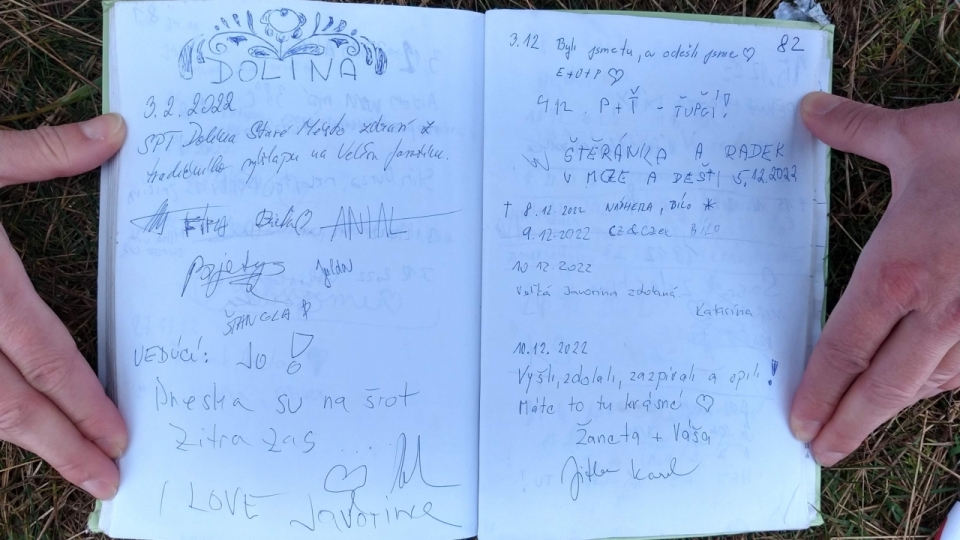 DOLINA
3.2.2022
SPT Dolina Staré Město zdraví z
tradičního výšlapu na Velkou Javořinu.
ANTAL
ŠANGLA
VEDÚCÍ: JO!
Dneska su na šrot
Zítra zas ...
I LOVE Javorina
82
3.12 Byli jsme tu, a odešli jsme ♡
E+O+P ♡
4.12. P+Ť - ŤUPCI!
ŠTĚRÁNKA A RADEK
V MZE A DEŠTI 5.12.2022
† 8.12.2022 NÁHERA, BÍLO *
9.12.2022 BÍLO
10.12.2022
Velká Javorina zdolaná
Katarína
10.12.2022
Vyšli, zdolali, zazpívali a opili!
Máte to tu krásné ♡
Žaneta + Váša
Jitka Karel